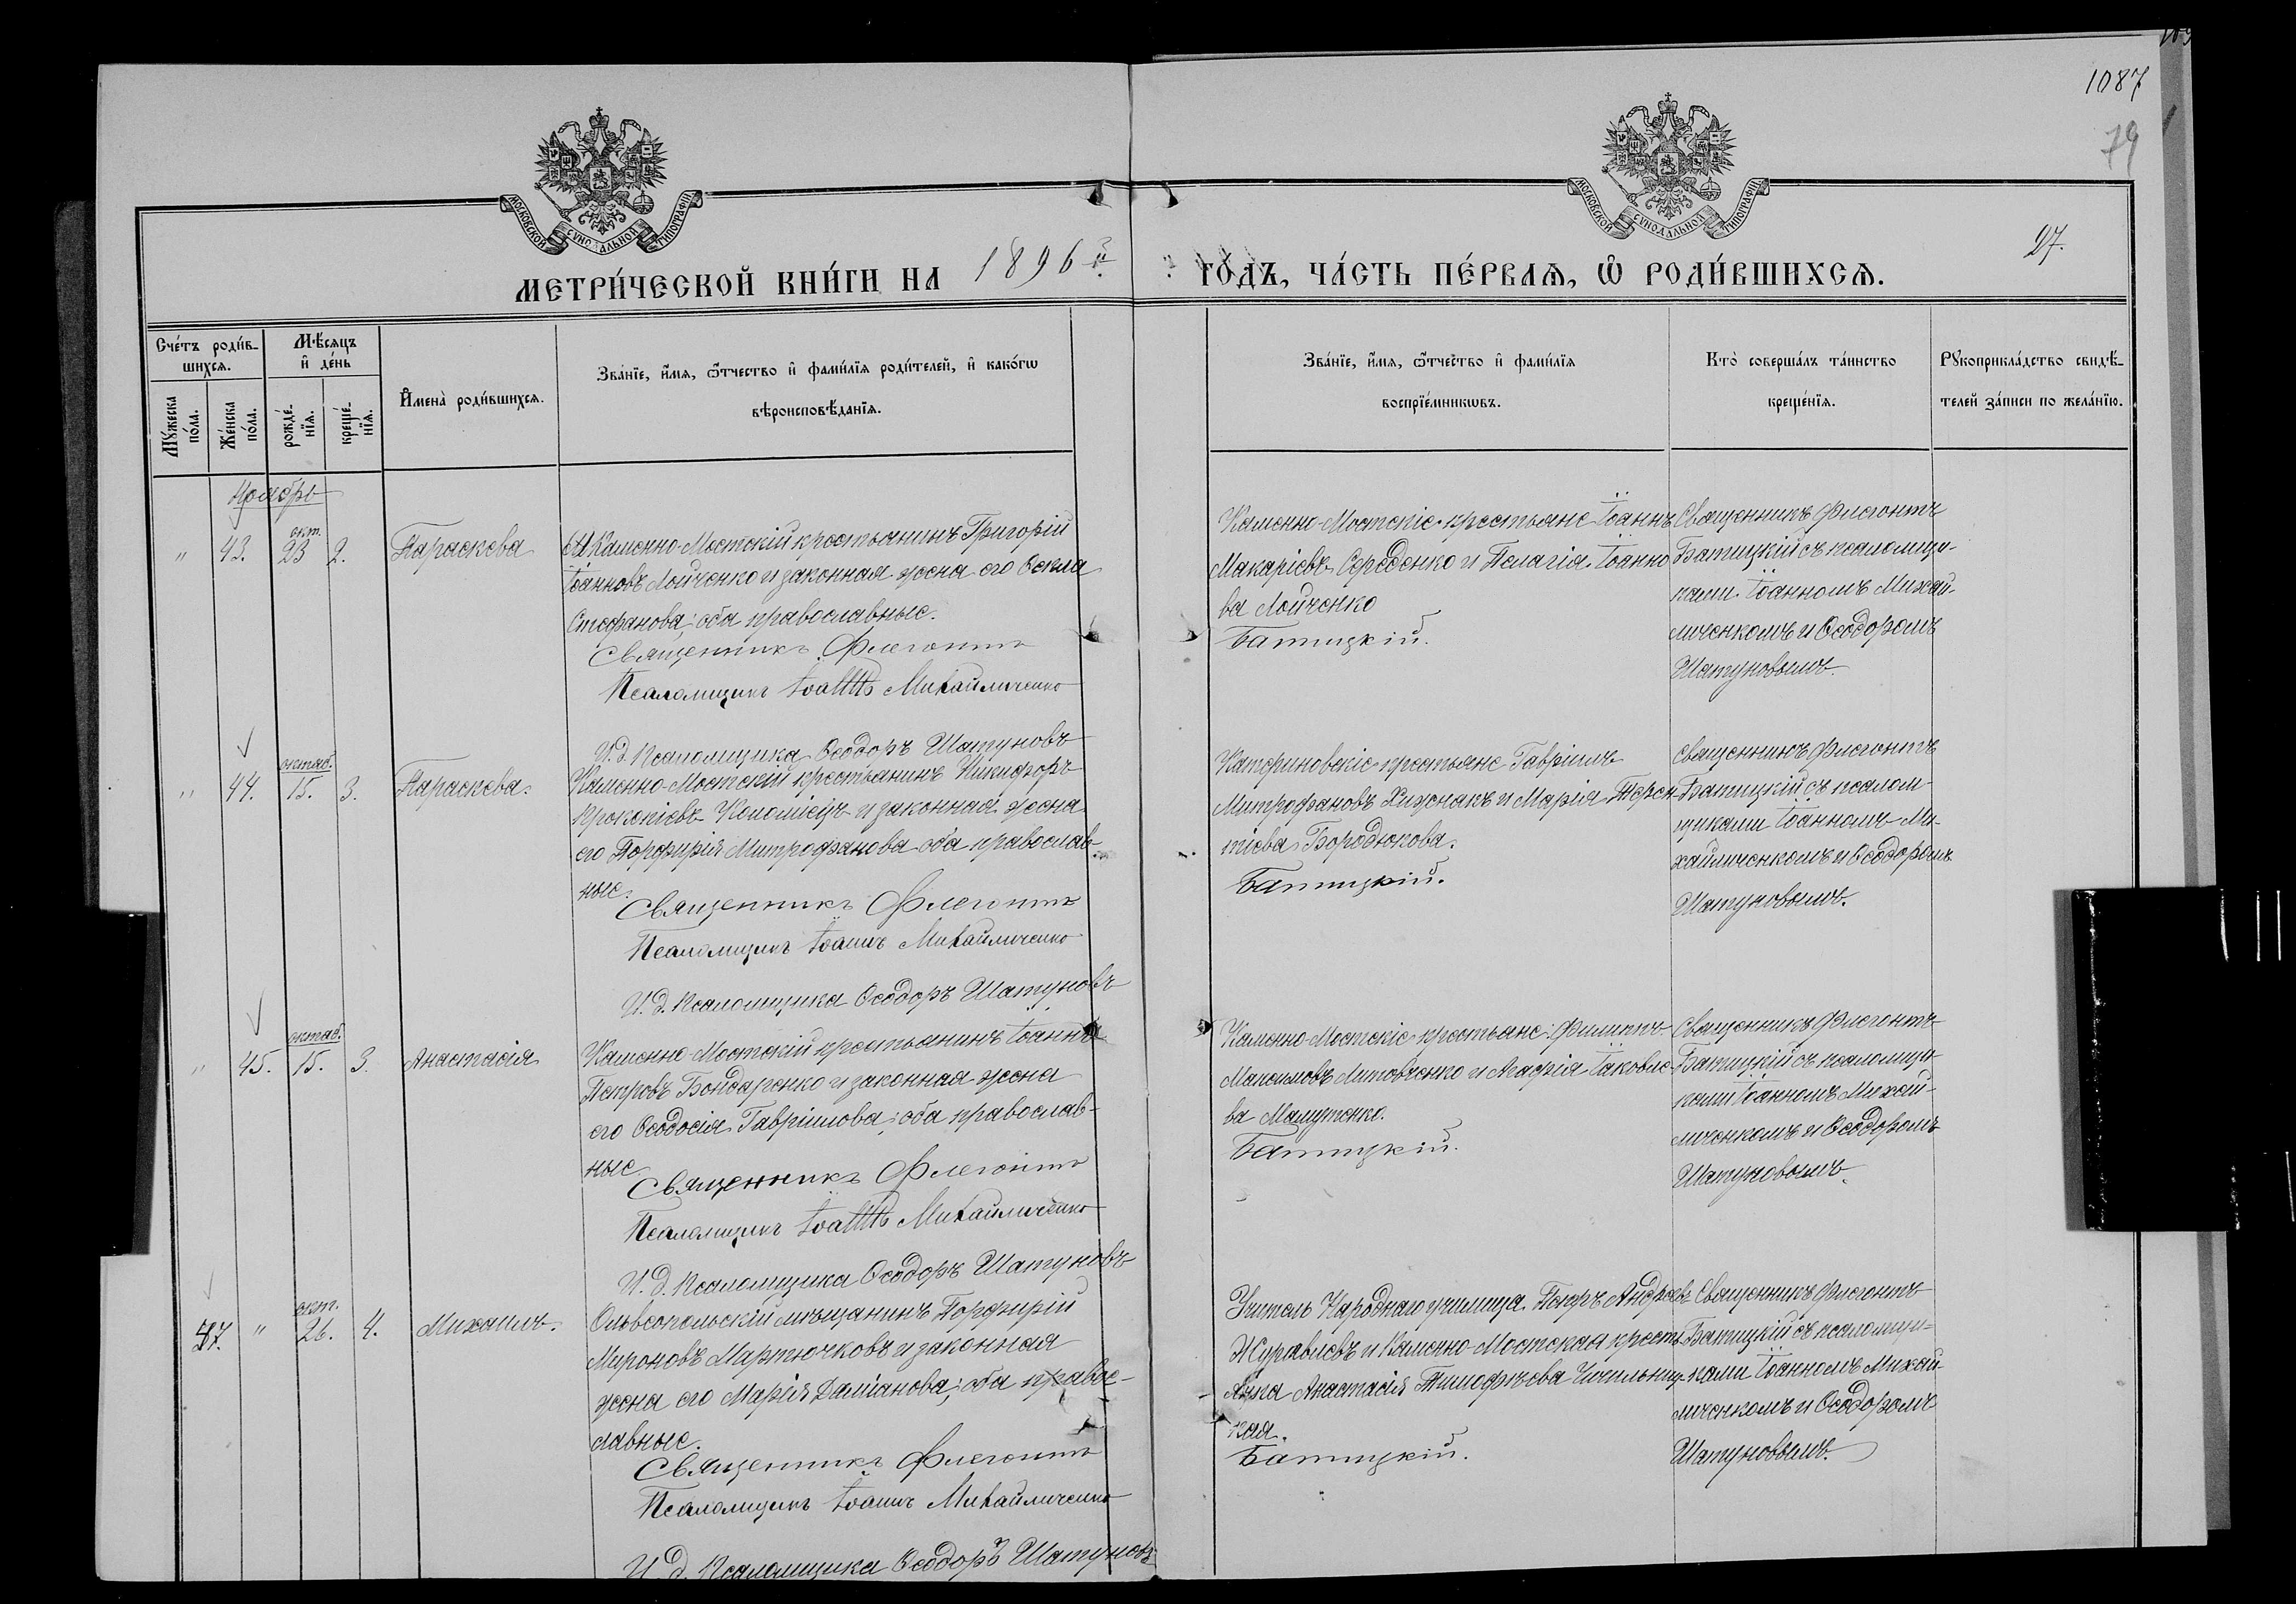 1087
79
27.
МОСКОВСКОЙ СѴНОДАЛЬНОЙ ТИПОГРАФІИ
МОСКОВСКОЙ СѴНОДАЛЬНОЙ ТИПОГРАФІИ
МЕТРИ́ЧЕСКОЙ КНИ́ГИ НА 1896 й ГО́ДЪ, ЧА́СТЬ ПЕ́РВАѦ, Ѽ РОДИ́ВШИХСѦ.
Сче́тъ роди́в-
шихсѧ.
Мѣ́сяцъ
и҆ де́нь
Мꙋ́жеска
по́ла.
Же́нска
по́ла.
рожде́-
нїѧ.
креще́-
нїѧ.
И҆мена̀ роди́вшихсѧ.
Зва́нїе, и҆́мѧ, ѻ҆́тчество и҆ фами́лїѧ роди́телей, и҆ како́гѡ
вѣроисповѣ́данїѧ.
Зва́нїе, и҆́мѧ, ѻ҆́тчество и҆ фами́лїѧ
воспрїе́мникѡвъ.
Кто̀ соверша́лъ та́инство
креще́нїѧ.
Рꙋкоприкла́дство свидѣ́-
телей за́писи по жела́нїю.
Ноябрь
" 43. окт. 23 2. Параскева
Каменно-Мостскій крестьянинъ Григорій
Іоанновъ Лойченко и законная жена его Ѳекла
Стефанова; оба православные.
Священникъ Флегонтъ
Псаломщикъ Іоаннъ Михайличенко
И. д. Псаломщика Ѳеодоръ Шатуновъ
Каменно-Мостскіе крестьяне Іоаннъ
Макаріевъ Середенко и Пелагія Іоанно
ва Лойченко
Батицкій.
Священникъ Флегонтъ
Батицкій съ псаломщи-
ками Іоанномъ Михай-
личенкомъ и Ѳеодоромъ
Шатуновымъ.
" 44. октяб. 15. 3. Параскева.
Каменно-Мостскій крестьянинъ Никифоръ
Прокопіевъ Коломіецъ и законная жена
его Порфирія Митрофанова оба православ-
ные.
Священникъ Флегонтъ
Псаломщикъ Іоаннъ Михайличенко
И. д. Псаломщика Ѳеодоръ Шатуновъ
Катериновскіе крестьяне Гавріилъ
Митрофановъ Хижнакъ и Марія Терен-
тіева Бородюкова.
Батицкій.
Священникъ Флегонтъ
Батицкій съ псалом-
щиками Іоанномъ Ми-
хайличенкомъ и Ѳеодоромъ
Шатуновымъ.
" 45. октяб. 15. 3. Анастасія
Каменно-Мостскій крестьянинъ Іоаннъ
Петровъ Бондаренко и законная жена
его Ѳеодосія Гавріилова; оба православ-
ные
Священникъ Флегонтъ
Псаломщикъ Іоаннъ Михайличенко
И. д. Псаломщика Ѳеодоръ Шатуновъ
Каменно-Мостскіе крестьяне: Филиппъ
Максимовъ Литовченко и Агафія Іаковле-
ва Мамутенко.
Батицкій.
Священникъ Флегонтъ
Батицкій съ псаломщи-
ками Іоанномъ Михай-
личенкомъ и Ѳеодоромъ
Шатуновымъ.
37. " окт. 26. 4. Михаилъ.
Ольвеопольскій мѣщанинъ Порфирій
Мироновъ Мартючковъ и законная
жена его Марія Даміанова; оба правос-
лавные.
Священникъ Флегонтъ
Псаломщикъ Іоаннъ Михайличенко
И. д. Псаломщика Ѳеодоръ Шатуновъ
Учитель Народнаго училища Петръ Андреевъ
Журавлевъ и Каменно-Мостская кресть-
янка Анастасія Тимофѣева
кая.
Батицкій.
Священникъ Флегонтъ
Батицкій съ псаломщи-
ками Іоанномъ Михай-
личенкомъ и Ѳеодоромъ
Шатуновымъ.